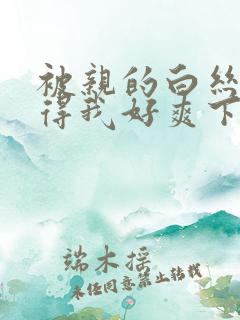 被親的白丝
得我好爽下
端木摇
未任同意禁止转载